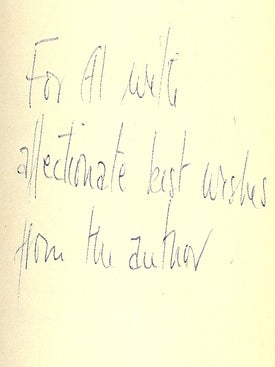 For Al with
affectionate best wishes
from the author